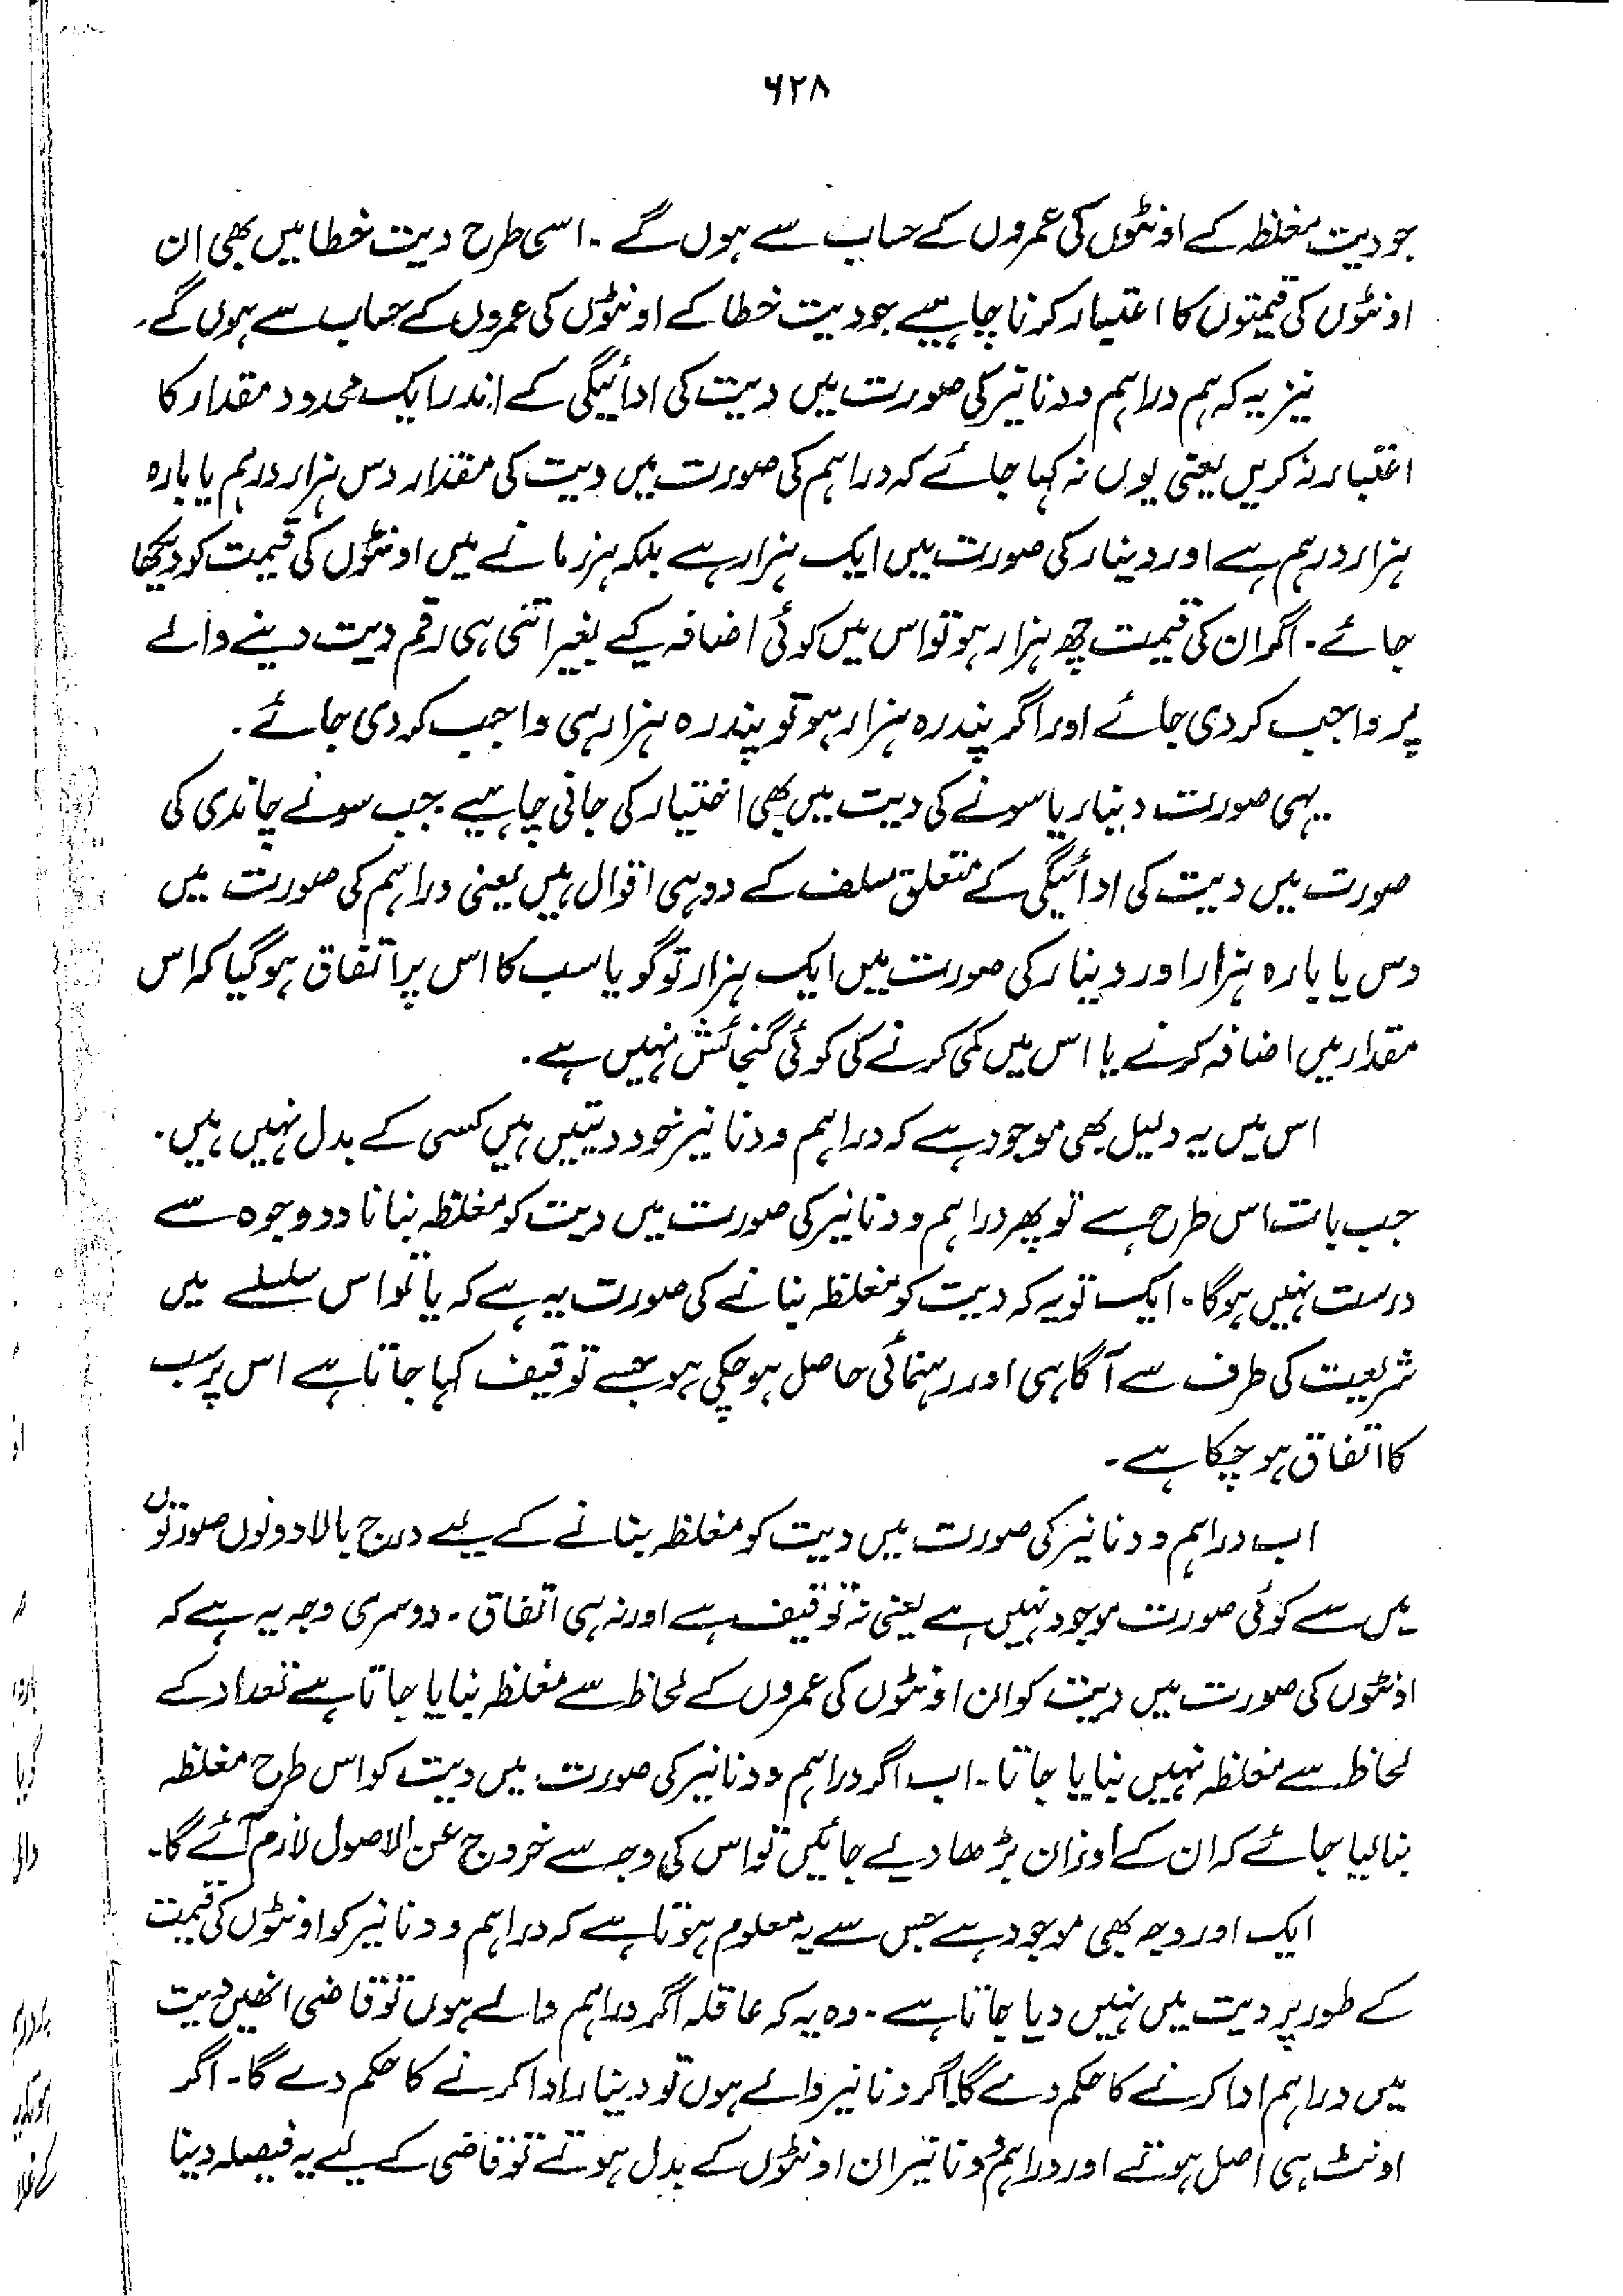 ۶۲۸
جو دیت مغلظہ کے اونٹوں کی عمروں کے حساب سے ہوں گے ۔ اسی طرح دیت خطا میں بھی ان
اونٹوں کی قیمتوں کا اعتبار کرنا چاہیے جو دیت خطا کے اونٹوں کی عمروں کے حساب سے ہوں گے۔
نیز یہ کہ ہم دراہم و دنانیر کی صورت میں دیت کی ادائیگی کے اندر ایک محدود مقدار کا
اعتبار نہ کریں یعنی یوں نہ کہا جائے کہ دراہم کی صورت میں دیت کی مقدار دس ہزار درہم یا بارہ
ہزار درہم ہے اور دینار کی صورت میں ایک ہزار ہے بلکہ ہر زمانے میں اونٹوں کی قیمت کو دیکھا
جائے۔ اگر ان کی قیمت چھ ہزار ہو تو اس میں کوئی اضافہ کیے بغیر اتنی ہی رقم دیت دینے والے
پر واجب کر دی جائے اور اگر پندرہ ہزار ہو تو پندرہ ہزار ہی واجب کر دی جائے۔
یہی صورت دینار یا سونے کی دیت میں بھی اختیار کی جانی چاہیے جب سونے چاندی کی
صورت میں دیت کی ادائیگی کے متعلق سلف کے دو ہی اقوال ہیں یعنی دراہم کی صورت میں
دس یا بارہ ہزار اور دینار کی صورت میں ایک ہزار تو گویا سب کا اس پر اتفاق ہو گیا کہ اس
مقدار میں اضافہ کرنے یا اس میں کمی کرنے کی کوئی گنجائش نہیں ہے۔
اس میں یہ دلیل بھی موجود ہے کہ دراہم و دنانیر خود دیتیں ہیں کسی کے بدل نہیں ہیں۔
جب بات اس طرح ہے تو پھر دراہم و دنانیر کی صورت میں دیت کو مغلظہ بنانا دو وجوہ سے
درست نہیں ہوگا۔ ایک تو یہ کہ دیت کو مغلظہ بنانے کی صورت یہ ہے کہ یا تو اس سلسلے میں
شریعت کی طرف سے آگاہی اور رہنمائی حاصل ہو چکی ہو جسے توقیف کہا جاتا ہے اس پر سب
کا اتفاق ہو چکا ہے۔
اب دراہم و دنانیر کی صورت میں دیت کو مغلظہ بنانے کے لیے درج بالا دونوں صورتوں
میں سے کوئی صورت موجود نہیں ہے یعنی نہ توقیف ہے اور نہ ہی اتفاق۔ دوسری وجہ یہ ہے کہ
اونٹوں کی صورت میں دیت کو ان اونٹوں کی عمروں کے لحاظ سے مغلظہ بنایا جاتا ہے تعداد کے
لحاظ سے مغلظہ نہیں بنایا جاتا۔ اب اگر دراہم و دنانیر کی صورت میں دیت کو اس طرح مغلظہ
بنا لیا جائے کہ ان کے اوزان بڑھا دیے جائیں تو اس کی وجہ سے خروج عن الاصول لازم آئے گا۔
ایک اور وجہ بھی موجود ہے جس سے یہ معلوم ہوتا ہے کہ دراہم و دنانیر کو اونٹوں کی قیمت
کے طور پر دیت میں نہیں دیا جاتا ہے۔ وہ یہ کہ عاقلہ اگر دراہم والے ہوں تو قاضی انھیں دیت
میں دراہم ادا کرنے کا حکم دے گا۔ اگر دنانیر والے ہوں تو دینار ادا کرنے کا حکم دے گا۔ اگر
اونٹ ہی اصل ہوتے اور دراہم و دنانیر ان اونٹوں کے بدل ہوتے تو قاضی کے لیے یہ فیصلہ دینا